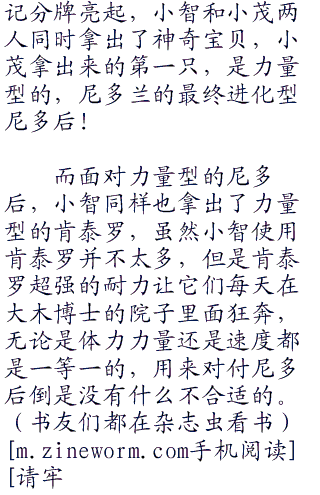 记分牌亮起，小智和小茂两
人同时拿出了神奇宝贝，小
茂拿出来的第一只，是力量
型的，尼多兰的最终进化型
尼多后！
而面对力量型的尼多
后，小智同样也拿出了力量
型的肯泰罗，虽然小智使用
肯泰罗并不太多，但是肯泰
罗超强的耐力让它们每天在
大木博士的院子里面狂奔，
无论是体力力量还是速度都
是一等一的，用来对付尼多
后倒是没有什么不合适的。
（书友们都在杂志虫看书）
[m.zineworm.com手机阅读]
[请牢